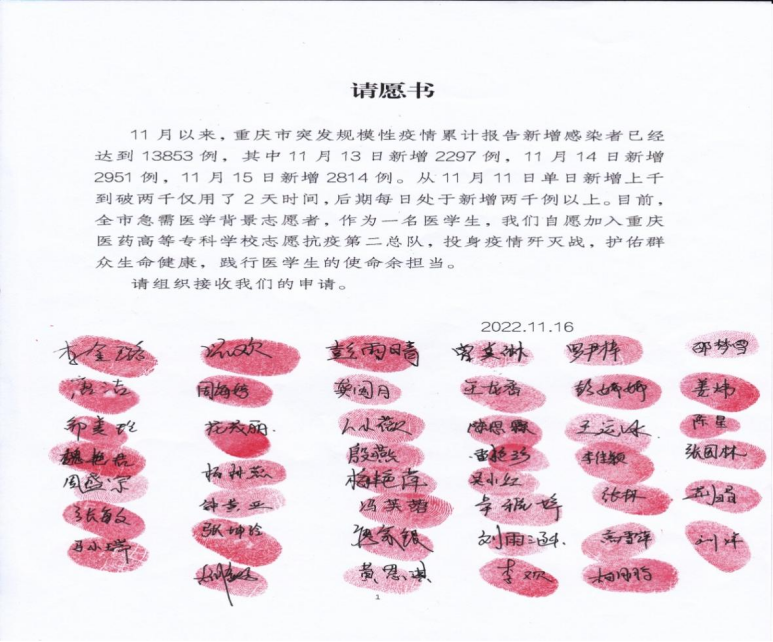 请愿书
11 月以来，重庆市突发规模性疫情累计报告新增感染者已经
达到 13853 例，其中 11 月 13 日新增 2297 例，11 月 14 日新增
2951 例，11 月 15 日新增 2814 例。从 11 月 11 日单日新增上千
到破两千仅用了 2 天时间，后期每日处于新增两千例以上。目前，
全市急需医学背景志愿者，作为一名医学生，我们自愿加入重庆
医药高等专科学校志愿抗疫第二总队，投身疫情歼灭战，护佑群
众生命健康，践行医学生的使命余担当。
请组织接收我们的申请。
2022.11.16
李金璐 彭雨晴 罗尹梓 邵梦雪
周海婷 吴园月 王龙香 彭婷婷 姜炜
陈恩霖 陈星
殷燕 李佳颖 张国林
周盛凉 杨艳萍 吴小红 张林 刘娟
钟芸亚 冯芙蓉
张敏文 张坤玲 刘雨涵 高雪萍 刘洋
马小瑞
黄思淇 李欢 杨明玲
1